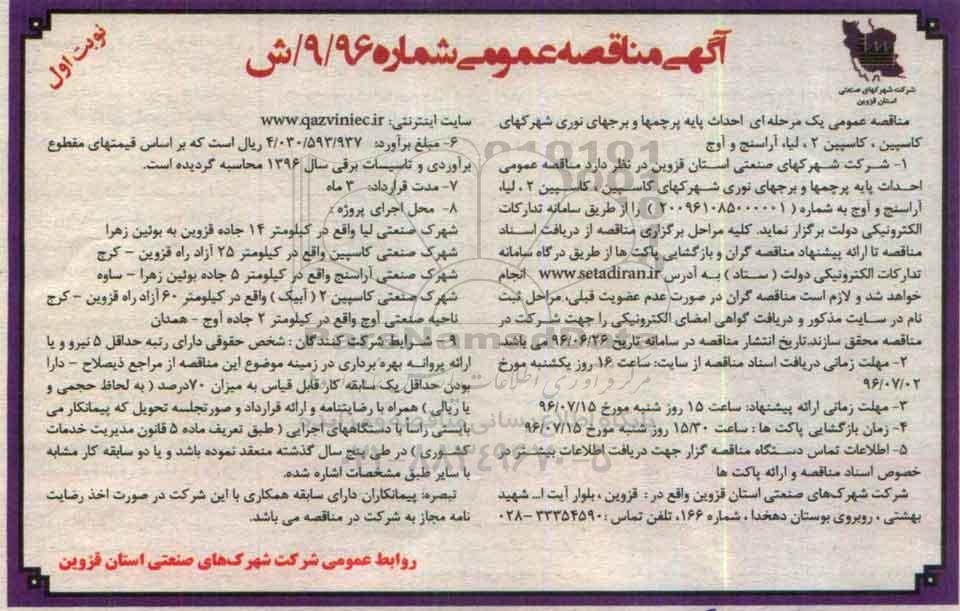 نوبت اول
آگهی مناقصه عمومی شماره ۹/۹۶/ش
شرکت شهرکهای صنعتی
استان قزوین
مناقصه عمومی یک مرحله ای احداث پایه پرچمها و برجهای نوری شهرکهای
کاسپین ، کاسپین ۲ ، لیا، آراسنج و آوج
۱- شرکت شهرکهای صنعتی استان قزوین در نظر دارد مناقصه عمومی
احداث پایه پرچمها و برجهای نوری شهرکهای کاسپین ، کاسپین ۲ ، لیا،
آراسنج و آوج به شماره ( ۲۰۰۹۶۱۰۸۵۰۰۰۰۰۱ ) را از طریق سامانه تدارکات
الکترونیکی دولت برگزار نماید. کلیه مراحل برگزاری مناقصه از دریافت اسناد
مناقصه تا ارائه پیشنهاد مناقصه گران و بازگشایی پاکت ها از طریق درگاه سامانه
تدارکات الکترونیکی دولت ( ستاد ) به آدرس www.setadiran.ir انجام
خواهد شد و لازم است مناقصه گران در صورت عدم عضویت قبلی، مراحل ثبت
نام در سایت مذکور و دریافت گواهی امضای الکترونیکی را جهت شرکت در
مناقصه محقق سازند.تاریخ انتشار مناقصه در سامانه تاریخ ۹۶/۰۶/۲۶ می باشد.
۲- مهلت زمانی دریافت اسناد مناقصه از سایت: ساعت ۱۶ روز یکشنبه مورخ
۹۶/۰۷/۰۲
۳- مهلت زمانی ارائه پیشنهاد: ساعت ۱۵ روز شنبه مورخ ۹۶/۰۷/۱۵
۴- زمان بازگشایی پاکت ها : ساعت ۱۵/۳۰ روز شنبه مورخ ۹۶/۰۷/۱۵
۵- اطلاعات تماس دستگاه مناقصه گزار جهت دریافت اطلاعات بیشتر در
خصوص اسناد مناقصه و ارائه پاکت ها
شرکت شهرک‌های صنعتی استان قزوین واقع در : قزوین ، بلوار آیت ا... شهید
بهشتی ، روبروی بوستان دهخدا ، شماره ۱۶۶، تلفن تماس : ۳۳۳۵۴۵۹۰-۰۲۸
سایت اینترنتی: www.qazviniec.ir
۶- مبلغ برآورد: ۴/۰۳۰/۵۹۳/۹۳۷ ریال است که بر اساس قیمتهای مقطوع
برآوردی و تاسیسات برقی سال ۱۳۹۶ محاسبه گردیده است.
۷- مدت قرارداد: ۳ ماه
۸- محل اجرای پروژه :
شهرک صنعتی لیا واقع در کیلومتر ۱۴ جاده قزوین به بوئین زهرا
شهرک صنعتی کاسپین واقع در کیلومتر ۲۵ آزاد راه قزوین - کرج
شهرک صنعتی آراسنج واقع در کیلومتر ۵ جاده بوئین زهرا - ساوه
شهرک صنعتی کاسپین ۲ ( آبیک ) واقع در کیلومتر ۶۰ آزاد راه قزوین - کرج
ناحیه صنعتی آوج واقع در کیلومتر ۲ جاده آوج - همدان
۹- شرایط شرکت کنندگان : شخص حقوقی دارای رتبه حداقل ۵ نیرو و یا
ارائه پروانه بهره برداری در زمینه موضوع این مناقصه از مراجع ذیصلاح - دارا
بودن حداقل یک سابقه کار قابل قیاس به میزان ۷۰درصد ( به لحاظ حجمی و
یا ریالی ) همراه با رضایتنامه و ارائه قرارداد و صورتجلسه تحویل که پیمانکار می
بایستی راساً با دستگاههای اجرایی ( طبق تعریف ماده ۵ قانون مدیریت خدمات
کشوری ) در طی پنج سال گذشته منعقد نموده باشد و یا دو سابقه کار مشابه
با سایر طبق مشخصات اشاره شده.
تبصره: پیمانکاران دارای سابقه همکاری با این شرکت در صورت اخذ رضایت
نامه مجاز به شرکت در مناقصه می باشد.
روابط عمومی شرکت شهرک‌های صنعتی استان قزوین